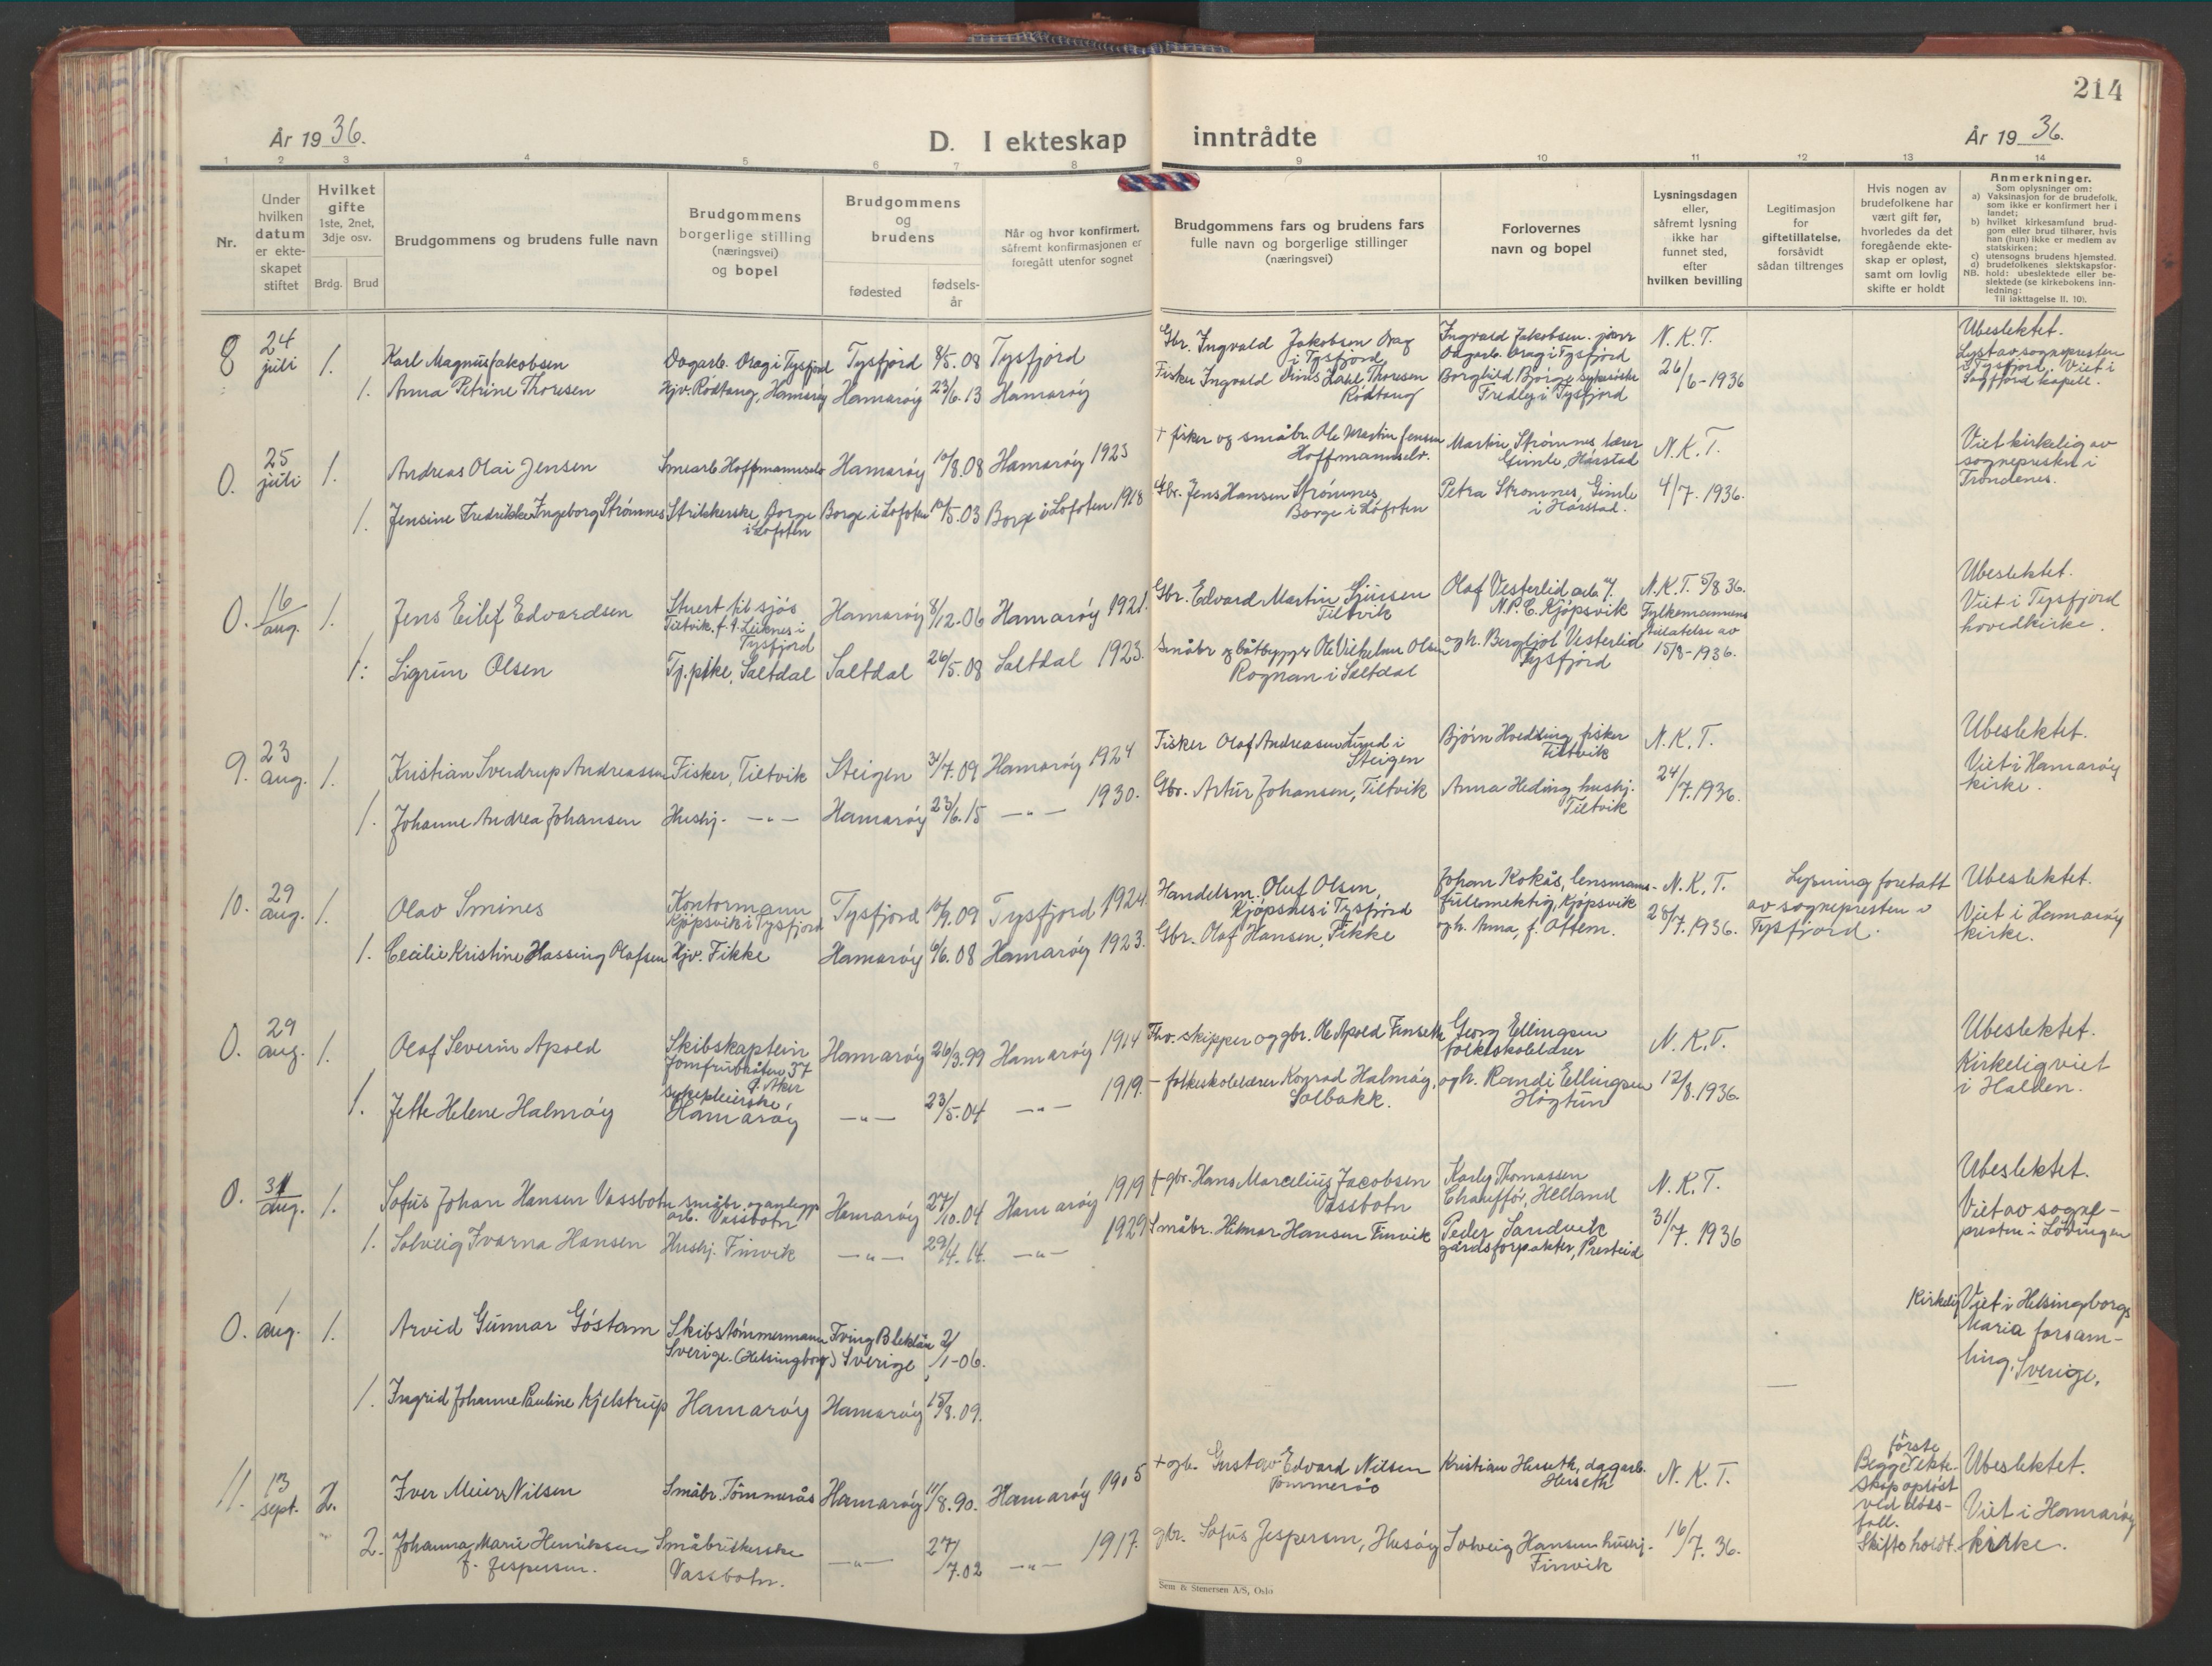 214
År 1936.
D. I ekteskap inntrådte
År 1936.
1 2 3 4 5 6 7 8 9 10 11 12 13 14
Nr.
Under
hvilken
datum
er ekte-
skapet
stiftet
Hvilket
gifte
1ste, 2net,
3dje osv.
Brdg. Brud
Brudgommens og brudens fulle navn
Brudgommens
borgerlige stilling
(næringsvei)
og bopel
Brudgommens
og
brudens
fødested
fødsels-
år
Når og hvor konfirmert,
såfremt konfirmasjonen er
foregått utenfor sognet
Brudgommens fars og brudens fars
fulle navn og borgerlige stillinger
(næringsvei)
Forlovernes
navn og bopel
Lysningsdagen
eller,
såfremt lysning
ikke har
funnet sted,
efter
hvilken bevilling
Legitimasjon
for
giftetillatelse,
forsåvidt
sådan tiltrenges
Hvis nogen av
brudefolkene har
vært gift før,
hvorledes da det
foregående ekte-
skap er opløst,
samt om lovlig
skifte er holdt
Anmerkninger.
Som oplysninger om:
a) Vaksinasjon for de brudefolk,
som ikke er konfirmert her i
landet;
b) hvilket kirkesamfund brud-
gom eller brud tilhører, hvis
han (hun) ikke er medlem av
statskirken;
c) utensogns brudens hjemsted.
d) brudefolkenes slektskapsfor-
NB. hold: ubeslektede eller be-
slektede (se kirkebokens inn-
ledning:
Til iakttagelse II. 10).
8 24 juli 1. Karl Magnus Jakobsen
Dagarb. Drag i Tysfjord Tysfjord 8/5.08 Tysfjord
Gbr. Ingvald Jakobsen Drag
i Tysfjord
Ingvald Jakobsen junr
Dagarb. Drag i Tysfjord
N.K.T.
26/6-1936
Ubeslektet.
Lyst av sognepresten
i Tysfjord. Viet i
Sagfjord kapell.
1. Anna Petrine Thoresen
Hjv. Rødtang, Hamarøy Hamarøy 23/6.13 Hamarøy
Fisker Ingvald Thoresen
Rødtang
Borghild Bjørge
i Tysfjord
0. 25 juli 1. Andreas Olai Jensen
Smearb. Hoffmannselv Hamarøy 10/8.08 Hamarøy 1923
+ fisker og småbr. Ole Martin Jensen
Hoffmannselv.
Martin Strømnes lærer
Gimle, Harstad
N.K.T.
4/7.1936.
Viet kirkelig av
sognepresten i
Trondenes.
1. Jensine Fredrikke Ingeborg Strømnes
Strikkerske Borge
i Lofoten
Borge i Lofoten 10/5.03 Borge i Lofoten 1918
Gbr. Jens Hansen Strømnes
Borge i Lofoten
Petra Strømnes, Gimle
i Harstad.
0. 16 aug. 1. Jens Eilif Edvardsen
Stuert til sjøs
Tiltvik. f.t. Leiknes i
Tysfjord
Hamarøy 8/12-06 Hamarøy 1921.
Gbr. Edvard Martin Sjursen
Tiltvik
Olaf Vesterlid arb. v/
N.P.C. Kjøpsvik
N.K.T. 5/8 36.
Fylkemannens
tillatelse av
15/8-1936.
Ubeslektet.
Viet i Tysfjord
hovedkirke.
1. Sigrun Olsen
Tj.pike, Saltdal Saltdal 26/5.08 Saltdal 1923.
Småbr og båtbygger Ole Vilhelm Olsen
Rognan i Saltdal
og h. Bergljot Vesterlid
Tysfjord
9. 23 aug. 1. Kristian Sverdrup Andreassen
Fisker, Tiltvik Steigen 31/7.09 Hamarøy 1924
Fisker Olaf Andreassen Lund i
Steigen
Bjørn Hveding fisker
Tiltvik
N.K.T.
24/7.1936.
Ubeslektet.
Viet i Hamarøy
kirke.
1. Johanne Andrea Johansen
Hushj. —"— Hamarøy 23/6.15 —"— 1930.
Gbr. Artur Johansen, Tiltvik
Anna Heding hushj.
Tiltvik
10. 29 aug. 1. Olav Smines
Kontormann
Kjøpsvik i Tysfjord
Tysfjord 10/9.09 Tysfjord 1924.
Handelsm. Oluf Olsen,
Kjøpsnes i Tysfjord
Johan Kokås, lensmanns-
fullmektig, Kjøpsvik
og h. Anna, f. Aftem.
N.K.T.
28/7.1936.
Lysning foretatt
av sognepresten i
Tysfjord.
Ubeslektet.
Viet i Hamarøy
kirke.
1. Cecilie Kristine Hassing Olafsen
Hjv. Fikke Hamarøy 6/6.08 Hamarøy 1923.
Gbr. Olaf Hansen, Fikke
0. 29 aug. 1. Olaf Severin Apold
Skibskaptein
Jomfrubråten 37
Ø. Aker
Hamarøy 26/3.99 Hamarøy 1914
Fhv. skipper og gbr. Ole Apold Finseth
Georg Ellingsen
folkeskolelærer
N.K.T.
12/8.1936.
Ubeslektet.
Kirkelig viet
i Halden.
1. Jette Helene Halmøy
sykepleierske,
Hamarøy
—"— 23/5.04 —"— 1919.
- folkeskolelærer Konrad Halmøy,
Solbakk.
og h. Randi Ellingsen
Høgtun
0. 31 aug. 1. Sofus Johan Hansen Vassbotn
småbr. og anleggs
arb. Vassbotn
Hamarøy 27/10.04 Hamarøy 1919
+ gbr. Hans Marcelius Jacobsen
Vassbotn
Karly Thomassen
Chauffør, Helland
N.K.T.
31/7.1936
Ubeslektet.
Viet av sogne-
presten i Lødingen
1. Solveig Ivarna Hansen
Hushj. Finvik —"— 29/4.14. —"— 1929
Småbr. Helmar Hansen Finvik
Peder Sandvik
gårdsforpakter, Presteid
0. 1 aug. 1. Arvid Gunnar Göstam
Skibstømmermann
Sverige. (Helsingborg)
Tving Blekläe
Sverige
2/1-06.
Kirkelig Viet i Helsingborgs
Maria forsam-
ling, Sverige.
1. Ingrid Johanne Pauline Kjelstrup
Hamarøy Hamarøy 15/8.09.
11. 13 sept. 2. Iver Meier Nilsen
Småbr. Tømmerås Hamarøy 11/8.90. Hamarøy 1905
+ gb. Gustav Edvard Nilsen
Tømmerås
Kristian Herseth, dagarb.
Herseth
N.K.T.
16/7.36.
første
Begges ekte-
skap opløst
ved døds-
fall.
Skifte holdt.
Ubeslektet.
Viet i Hamarøy
kirke.
2. Johanna Marie Henriksen
f. Jespersen.
Småbrukerske
Vassbotn.
—"— 27/7.02 —"— 1917.
gbr. Sofus Jespersen, Husøy
Solveig Hansen hushj.
Finvik
Sem & Stenersen A/S, Oslo